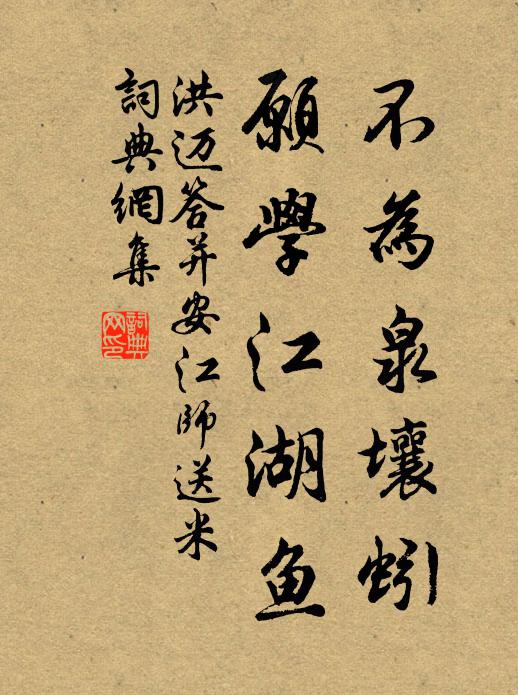 不為泉壤蚓
願學江湖鱼
洪迈答并安江師送米
詞典網集
詞典網印